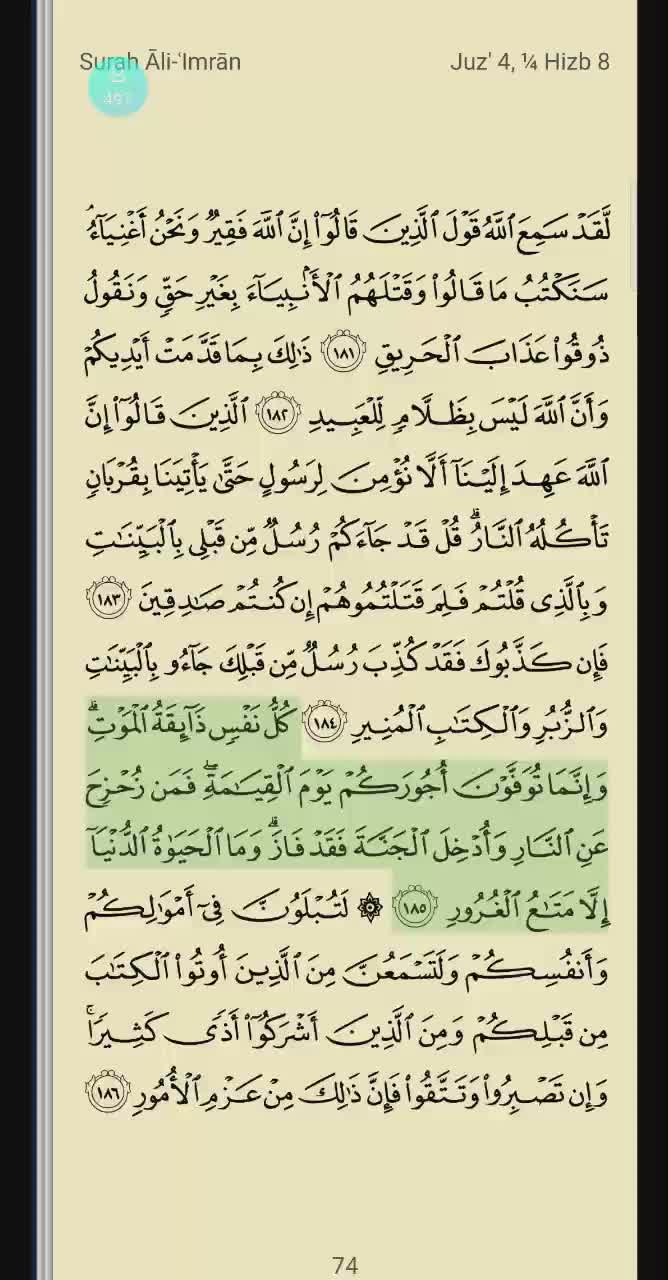 Surah Āli-ʿImrān
Juz' 4, ¼ Hizb 8
لَّقَدْ سَمِعَ ٱللَّهُ قَوْلَ ٱلَّذِينَ قَالُوٓا۟ إِنَّ ٱللَّهَ فَقِيرٌ وَنَحْنُ أَغْنِيَآءُ ۘ
سَنَكْتُبُ مَا قَالُوا۟ وَقَتْلَهُمُ ٱلْأَنۢبِيَآءَ بِغَيْرِ حَقٍّ وَنَقُولُ
ذُوقُوا۟ عَذَابَ ٱلْحَرِيقِ ١٨١ ذَٰلِكَ بِمَا قَدَّمَتْ أَيْدِيكُمْ
وَأَنَّ ٱللَّهَ لَيْسَ بِظَلَّامٍ لِّلْعَبِيدِ ١٨٢ ٱلَّذِينَ قَالُوٓا۟ إِنَّ
ٱللَّهَ عَهِدَ إِلَيْنَآ أَلَّا نُؤْمِنَ لِرَسُولٍ حَتَّىٰ يَأْتِيَنَا بِقُرْبَانٍ
تَأْكُلُهُ ٱلنَّارُ ۗ قُلْ قَدْ جَآءَكُمْ رُسُلٌ مِّن قَبْلِى بِٱلْبَيِّنَٰتِ
وَبِٱلَّذِى قُلْتُمْ فَلِمَ قَتَلْتُمُوهُمْ إِن كُنتُمْ صَٰدِقِينَ ١٨٣
فَإِن كَذَّبُوكَ فَقَدْ كُذِّبَ رُسُلٌ مِّن قَبْلِكَ جَآءُو بِٱلْبَيِّنَٰتِ
وَٱلزُّبُرِ وَٱلْكِتَٰبِ ٱلْمُنِيرِ ١٨٤ كُلُّ نَفْسٍ ذَآئِقَةُ ٱلْمَوْتِ ۗ
وَإِنَّمَا تُوَفَّوْنَ أُجُورَكُمْ يَوْمَ ٱلْقِيَٰمَةِ ۖ فَمَن زُحْزِحَ
عَنِ ٱلنَّارِ وَأُدْخِلَ ٱلْجَنَّةَ فَقَدْ فَازَ ۗ وَمَا ٱلْحَيَوٰةُ ٱلدُّنْيَآ
إِلَّا مَتَٰعُ ٱلْغُرُورِ ١٨٥ ۞ لَتُبْلَوُنَّ فِىٓ أَمْوَٰلِكُمْ
وَأَنفُسِكُمْ وَلَتَسْمَعُنَّ مِنَ ٱلَّذِينَ أُوتُوا۟ ٱلْكِتَٰبَ
مِن قَبْلِكُمْ وَمِنَ ٱلَّذِينَ أَشْرَكُوٓا۟ أَذًى كَثِيرًا ۚ
وَإِن تَصْبِرُوا۟ وَتَتَّقُوا۟ فَإِنَّ ذَٰلِكَ مِنْ عَزْمِ ٱلْأُمُورِ ١٨٦
74